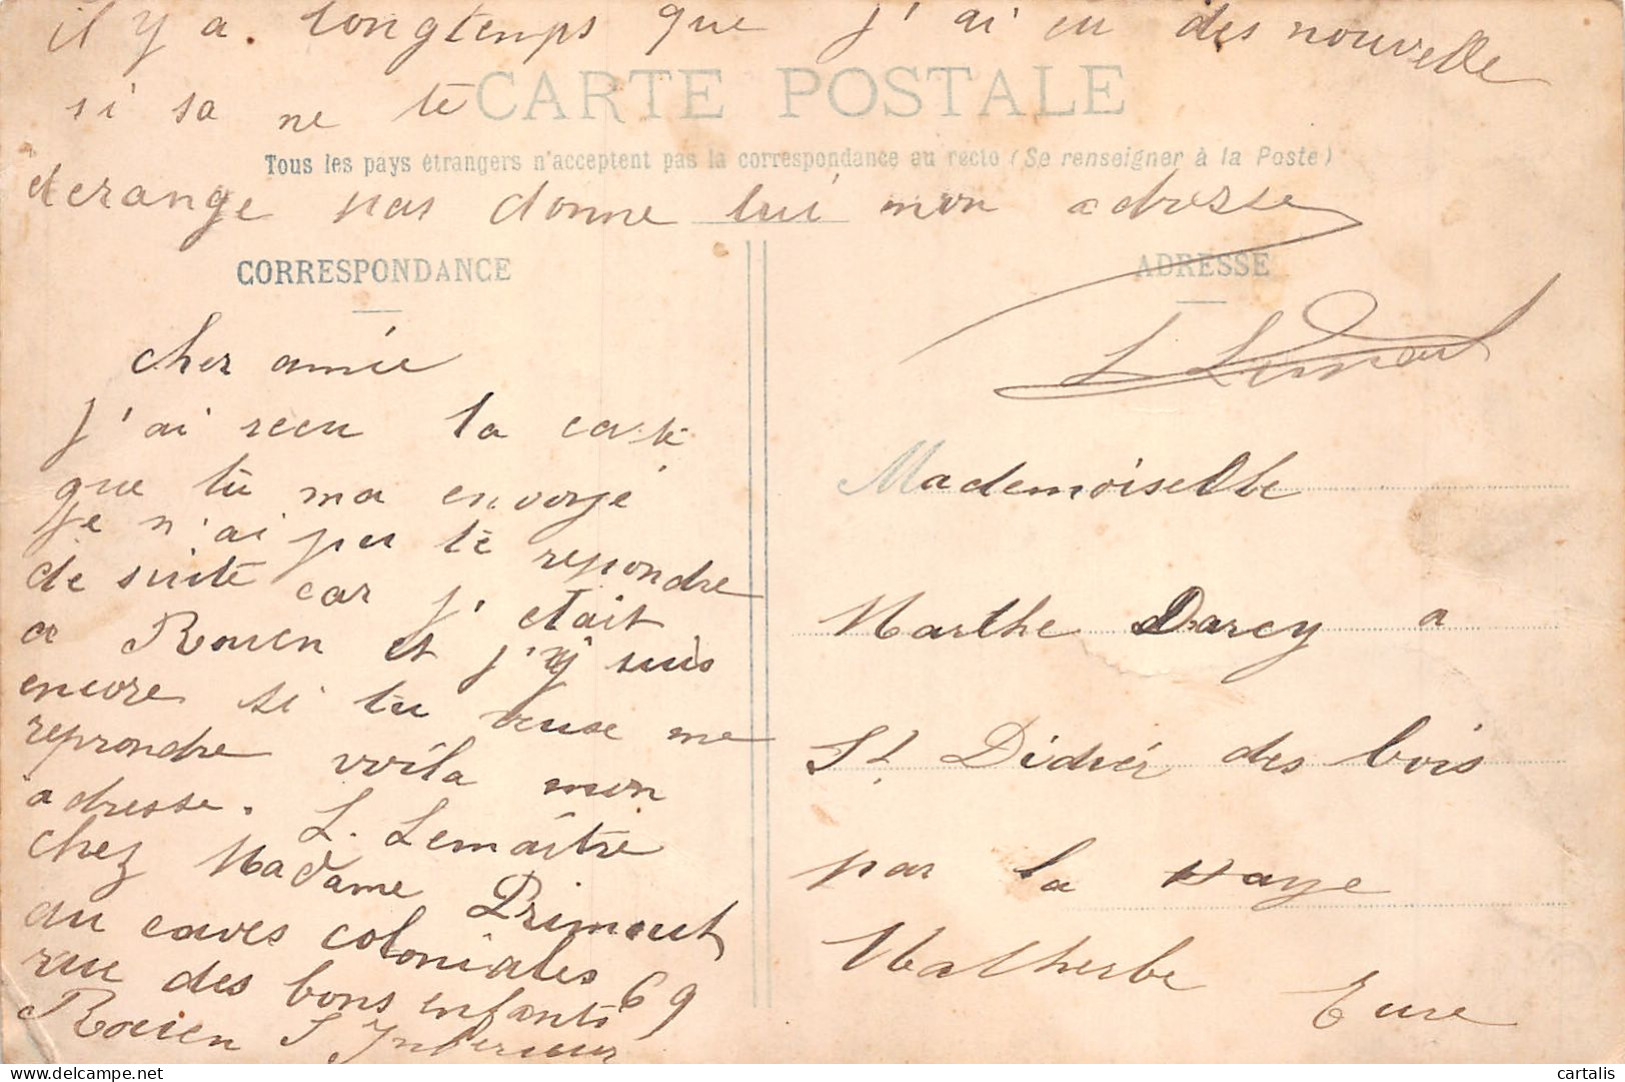 il y a longtemps que j'ai eu des nouvelle
si sa ne te
CARTE POSTALE
Tous les pays étrangers n'acceptent pas la correspondance au recto (Se renseigner à la Poste)
derange pas donne lui mon adresse
CORRESPONDANCE
cher amie
j'ai recu la carte
que tu ma envoyé
je n'ai pu te repondre
de suite car j'etait
a Rouen et j'y suis
encore si tu veuse me
reprondre voila mon
adresse. L. Lemaître
chez Madame Primout
au caves coloniales
rue des bons enfants 69
Rouen S Inferieur
ADRESSE
Mademoiselle
Marthe Darcy a
St Didier des bois
par la haye
Malherbe Eure
cartalis
www.delcampe.net